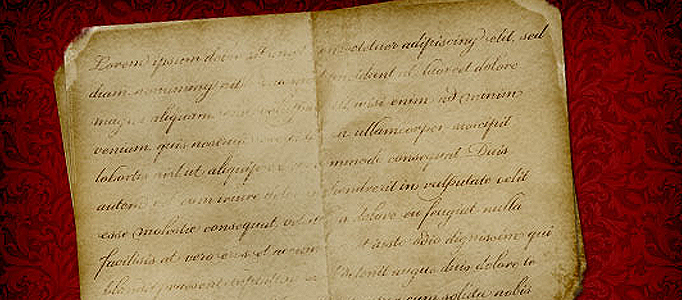 Lorem ipsum dolor sit amet consectetuer adipiscing elit, sed
diam nonummy tincidunt ut laoreet dolore
magna aliquam wisi enim ad minim
veniam, quis nostrud ullamcorper suscipit
lobortis nisl ut aliquip ex commodo consequat. Duis
autem hendrerit in vulputate velit
esse molestie consequat, dolore eu feugiat nulla
facilisis at vero eros et iusto odio dignissim qui
blandit praesent delenit augue duis dolore te
cum soluta nobis